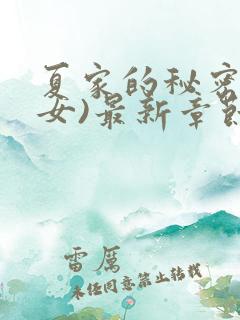 夏家的秘密
女)最新章節
雷厲
未经同意禁止转载